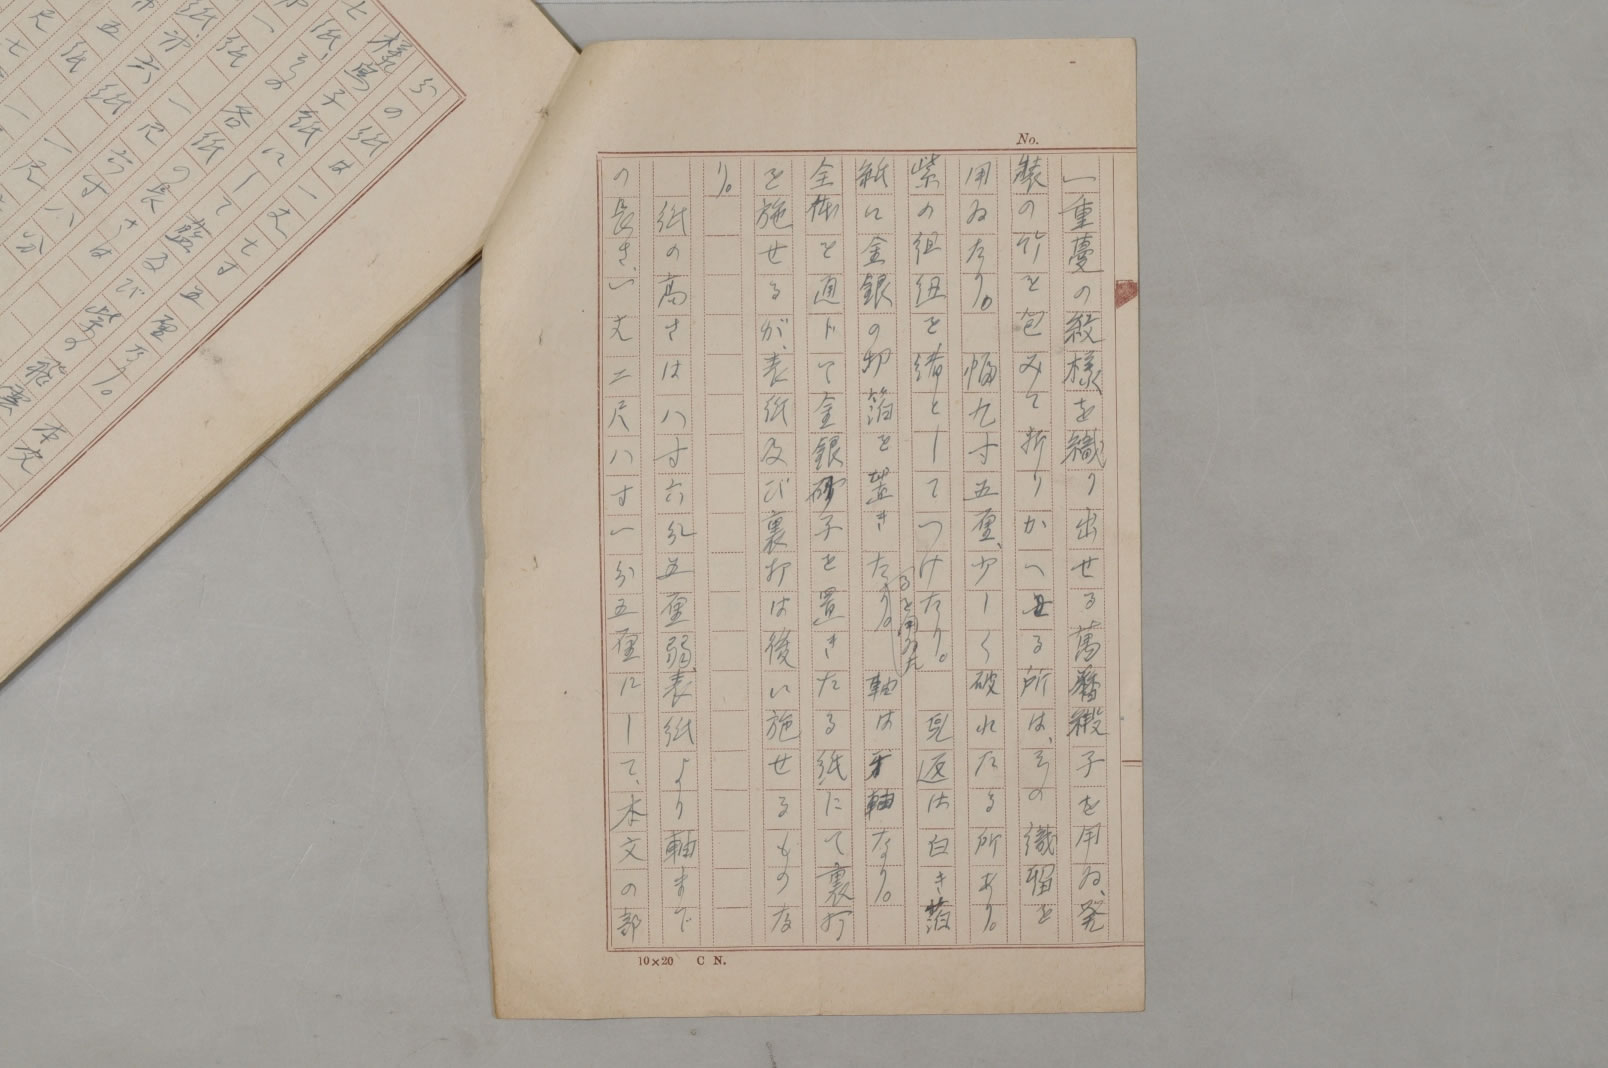 No.
一重蔓の紋様を織り出せる萬暦緞子を用ゐ、発
装の竹を包みて折りかへせる所は、その織留を
用ゐたり。 幅九寸五厘、少しく破れたる所あり。
紫の組紐を緒としてつけたり。 見返は白き箔
るを用ゐた
紙に金銀の切箔を置きたり。 軸は牙軸なり。
全体を通じて金銀砂子を置きたる紙にて裏打
を施せるが、表紙及び裏打は後に施せるものな
り。
紙の高さは八寸六分五厘弱、表紙より軸まで
の長さ、一丈二尺八寸一分五厘にして、本文の部
10×20 C N.
分の紙は一丈七寸五厘なり。 本文
様鳥子紙にして藍及び紫の飛雲
紙、その各紙の長さは
一紙 一尺六寸八分
紙、第六紙 一尺
五紙